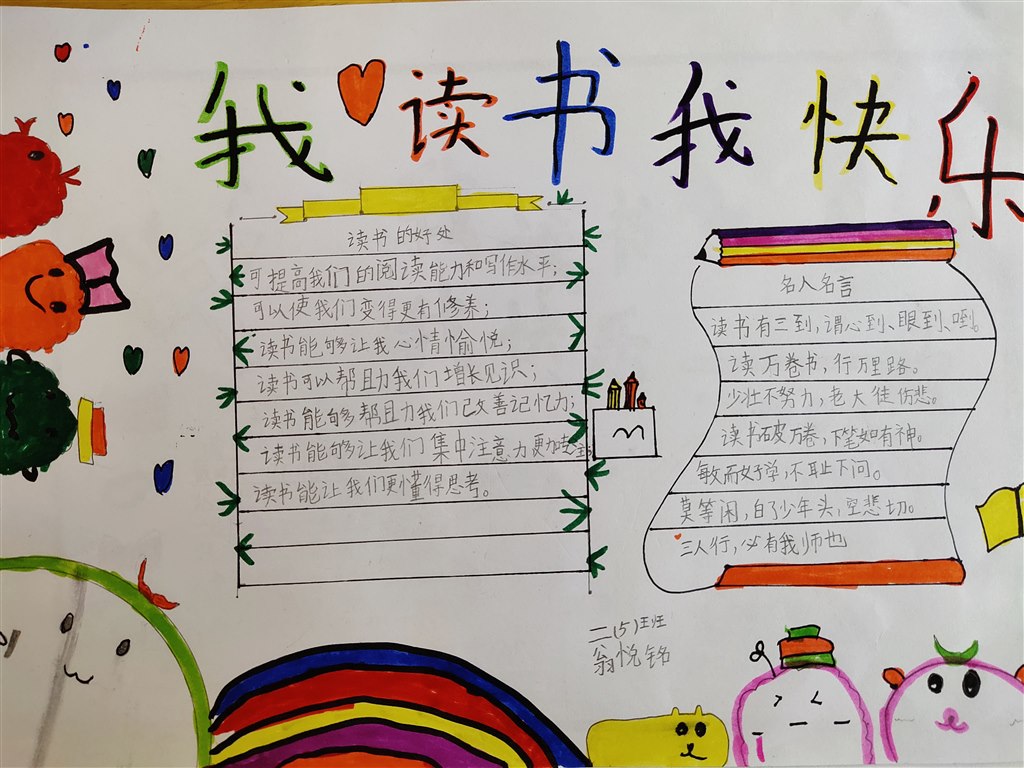 我读书我快乐
读书的好处
可提高我们的阅读能力和写作水平;
可以使我们变得更有修养;
读书能够让我心情愉悦;
读书可以帮助力我们增长见识;
读书能够帮助力我们改善记忆力;
读书能够让我们集中注意力更加
读书能让我们更懂得思考。
名人名言
读书有三到,谓心到、眼到、口到。
读万卷书,行万里路。
少壮不努力,老大徒伤悲。
读书破万卷,下笔如有神。
敏而好学,不耻下问。
莫等闲,白了少年头,空悲切。
三人行,必有我师也
二(5)班
翁悦铭